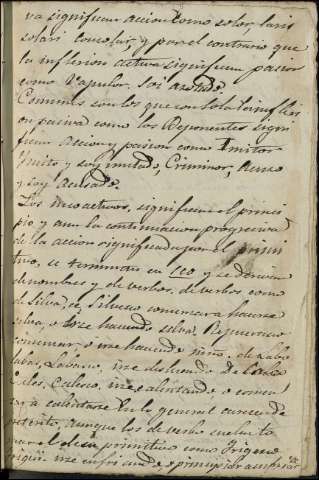 va significan accion como solor, laris
solari consolar, y por el contrario que
la inflexion activa significan pasion
como Vapulor. Soi azotado.
Comunes son los que con sola la inflex
on pasiva como los Deponentes signi
fican Accion y pasion como Imitor
Imito y soy imitado, Criminor, Acuso
y soy Acusado.
Los incoativos, significan el princi
pio y aun la continuacion progresiva
de la accion significada por el primi
tivo, se terminan en Sco y se derivan
de nombres y de verbos, de verbos como
de Silva, æ Silvesco comenzar a hacerse
selva, o irse haciendo selva, Repuerasco
comenzar, o irse haciendo niño. de Labo
labas, Labasco, irse deslizando de Caleo
Cales, Calesco, irse calentando, o comen
zar a calentarse en lo general carece de
preterito, aunque los de verbo suelen to
mar el de su primitivo como Frigesco
frigui irse enfriando o principiar a enfriar